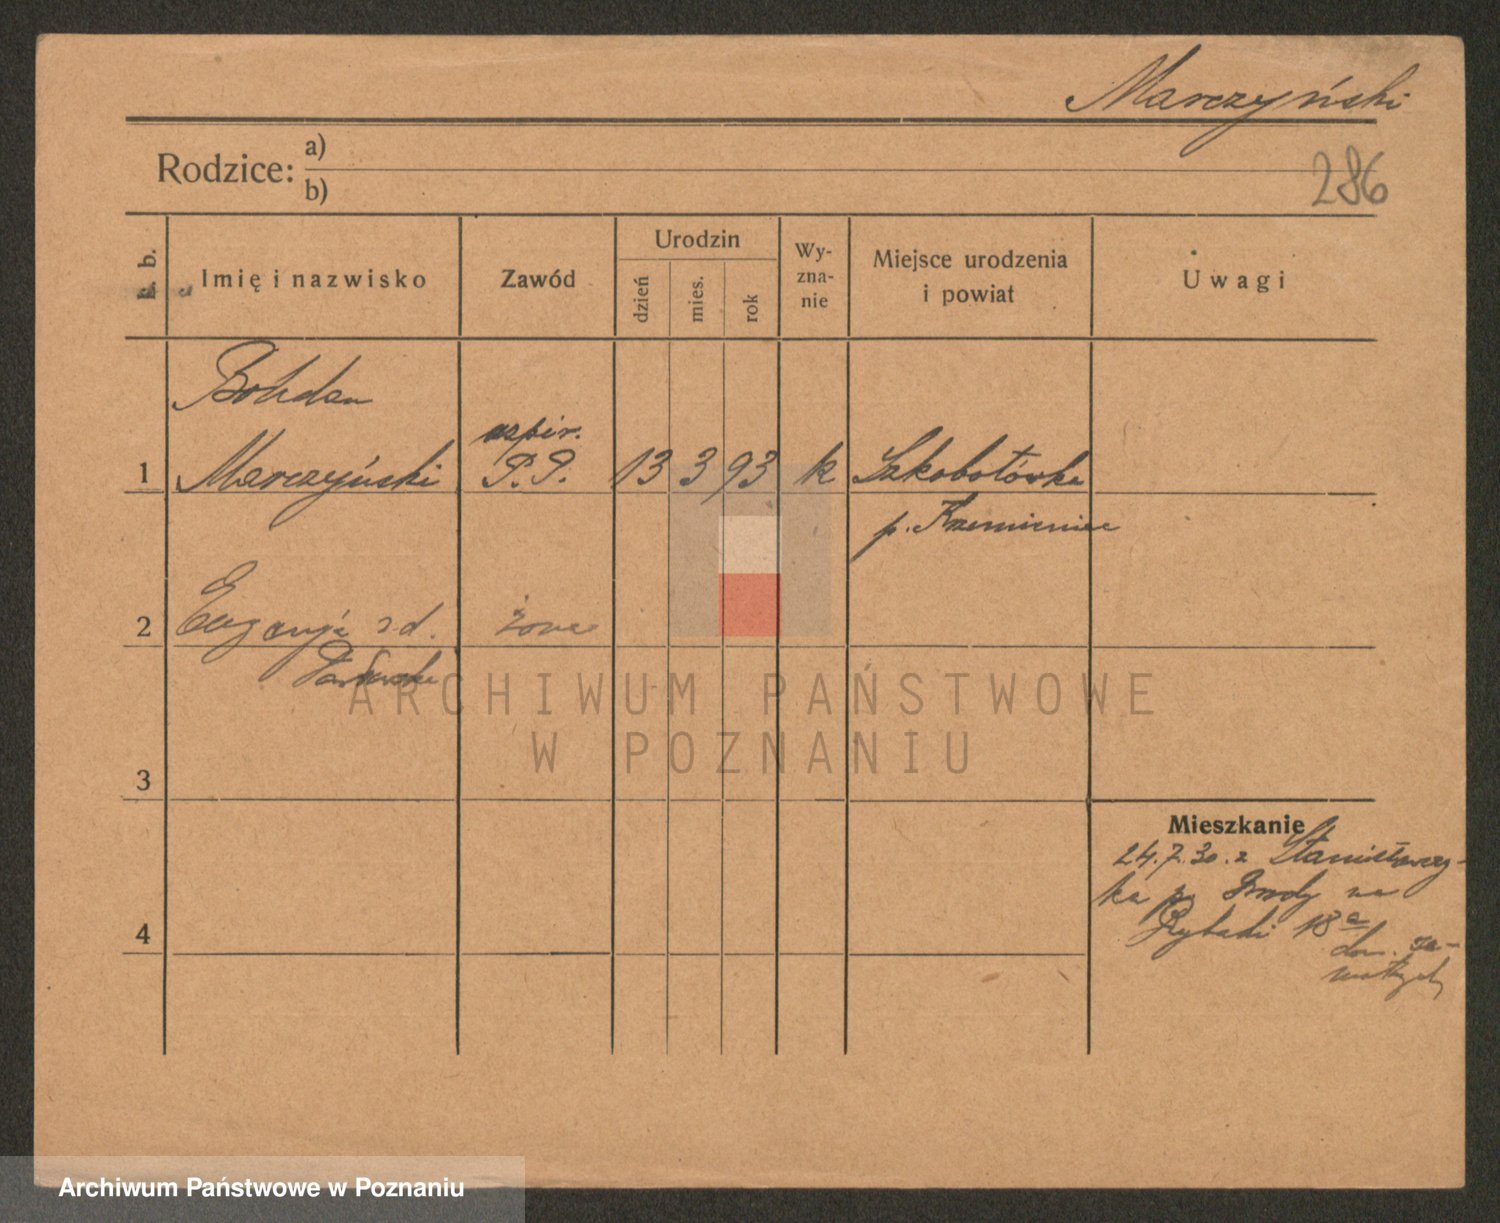 Marczyński
286
Rodzice: a)
b)
L. b.
Imię i nazwisko
Zawód
Urodzin
dzień
mies.
rok
Wy-
zna-
nie
Miejsce urodzenia
i powiat
Uwagi
Bohdan
1 Marczyński
aspir.
P.P.
13 3 93 k Szkobotówka
p. Krzemieniec
2 Eugenja zd. żona
3
4
Mieszkanie
24.7.30. z Stanisławczy-
ka p. Brody na
Rybaki 18a
ARCHIWUM PAŃSTWOWE
W POZNANIU
Archiwum Państwowe w Poznaniu